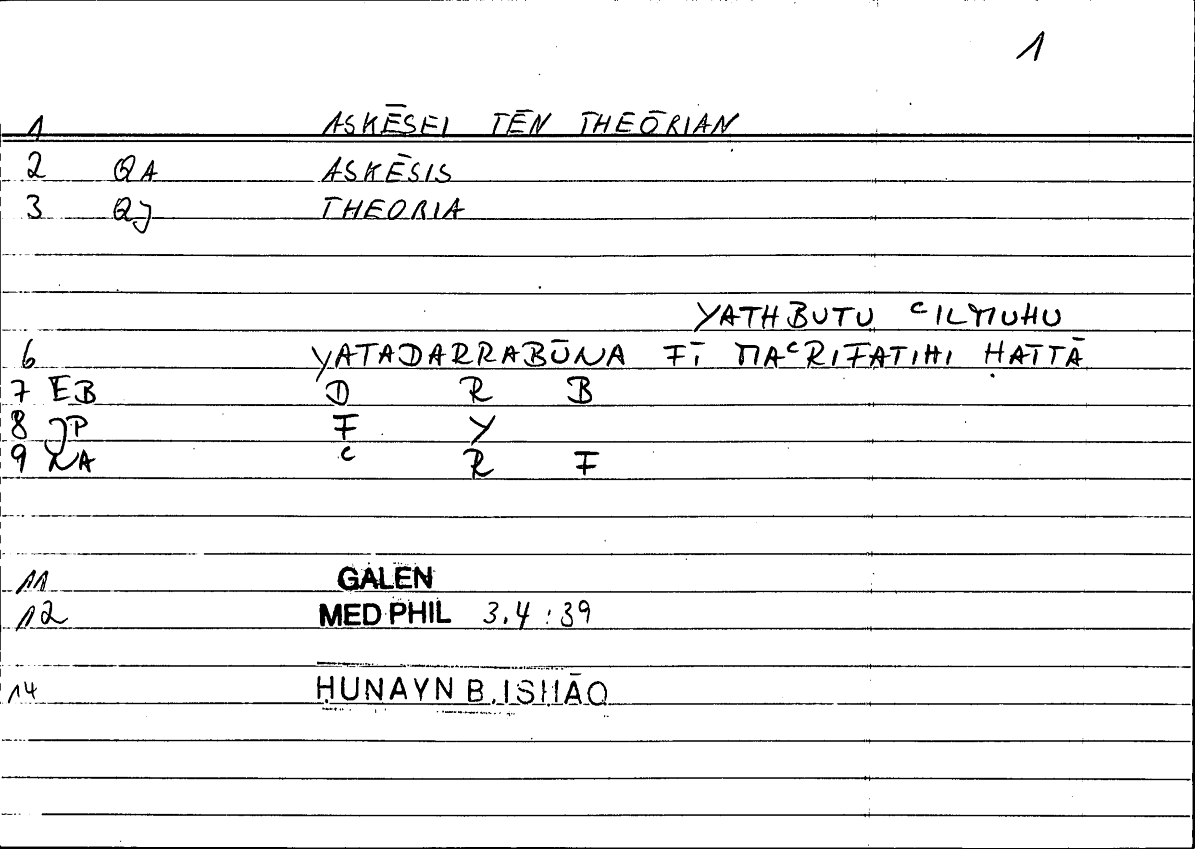 1
1 ASKĒSEI TĒN THEŌRIAN
2 QA ASKĒSIS
3 QJ THEORIA
YATHBUTU ᶜILMUHU
6 YATADARRABŪNA FĪ MAᶜRIFATIHI ḤATTĀ
7 EB D R B
8 JP F Y
9 NA ᶜ R F
11 GALEN
12 MED PHIL 3.4 : 39
14 ḤUNAYN B. ISḤĀQ